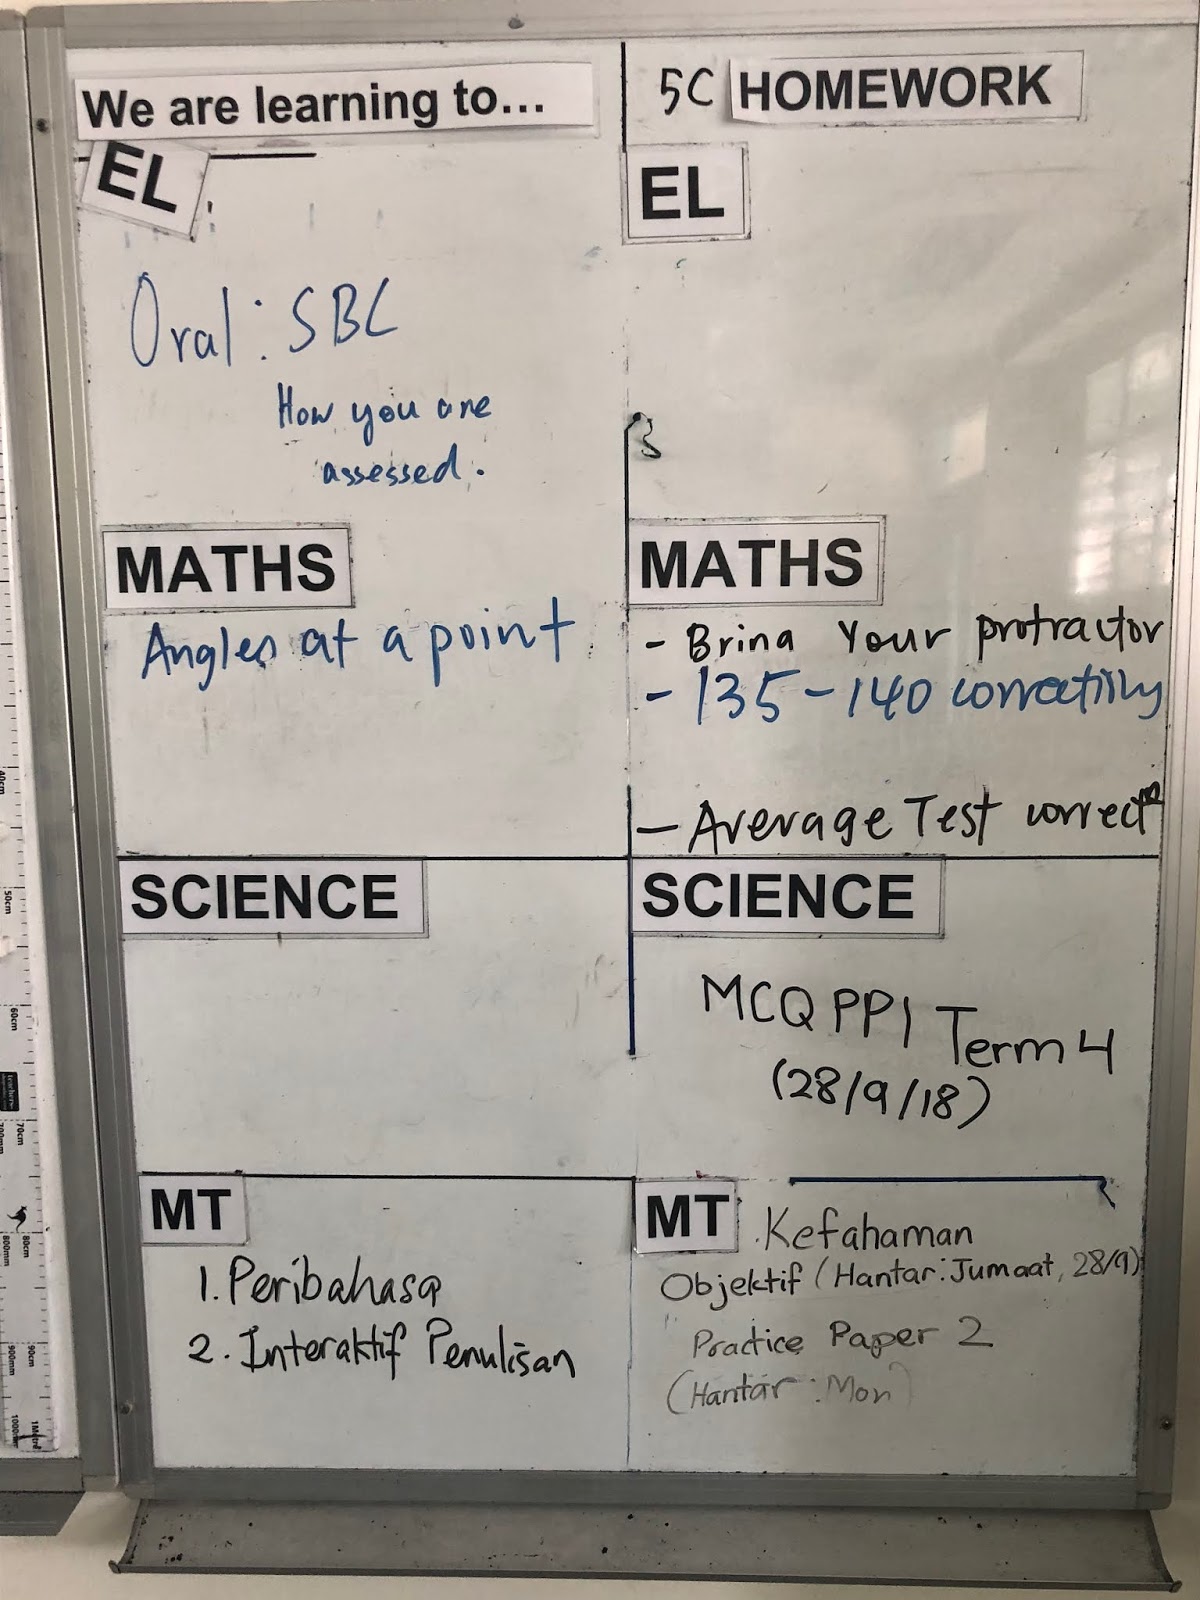 We are learning to...
EL
Oral: SBC
How you are
assessed.
MATHS
Angles at a point
SCIENCE
MT
1. Peribahasa
2. Interaktif Penulisan
5C HOMEWORK
EL
MATHS
- Bring Your protractor
- 135-140 corrections
- Average Test correctn
SCIENCE
MCQ PP1 Term 4
(28/9/18)
MT . Kefahaman
Objektif (Hantar: Jumaat, 28/9)
Practice Paper 2
(Hantar: Mon)
40cm
50cm
60cm
70cm
700mm
80cm
800mm
90cm
900mm
1Metre
1000mm
teachers